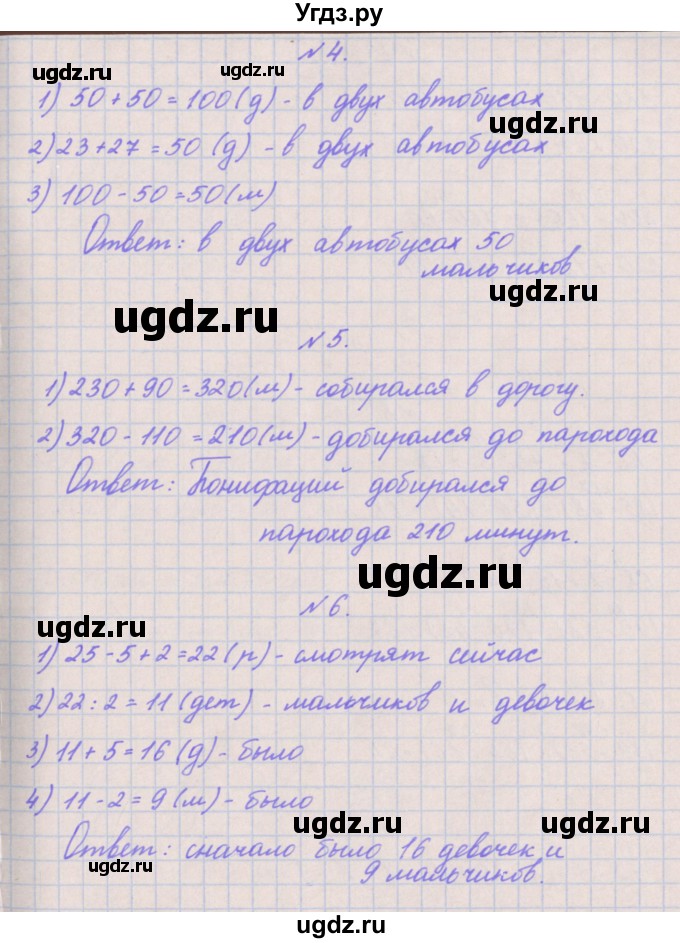 Угдз.ру
ugdz.ru ugdz.ru
№4.
1) 50 + 50 = 100 (д) - в двух автобусах
ugdz.ru
2) 23 + 27 = 50 (д) - в двух автобусах
ugdz.ru
3) 100 - 50 = 50 (м)
Ответ: в двух автобусах 50
мальчиков
ugdz.ru
ugdz.ru
№5.
1) 230 + 90 = 320 (м) - собирался в дорогу.
2) 320 - 110 = 210 (м) - добирался до парохода
Ответ: Бонифаций добирался до
парохода 210 минут.
ugdz.ru
№6.
ugdz.ru
1) 25 - 5 + 2 = 22 (р) - смотрят сейчас
2) 22 : 2 = 11 (дет) - мальчиков и девочек
3) 11 + 5 = 16 (д) - было
4) 11 - 2 = 9 (м) - было
ugdz.ru ugdz.ru
Ответ: сначало было 16 девочек и
9 мальчиков.
ugdz.ru
ugdz.ru